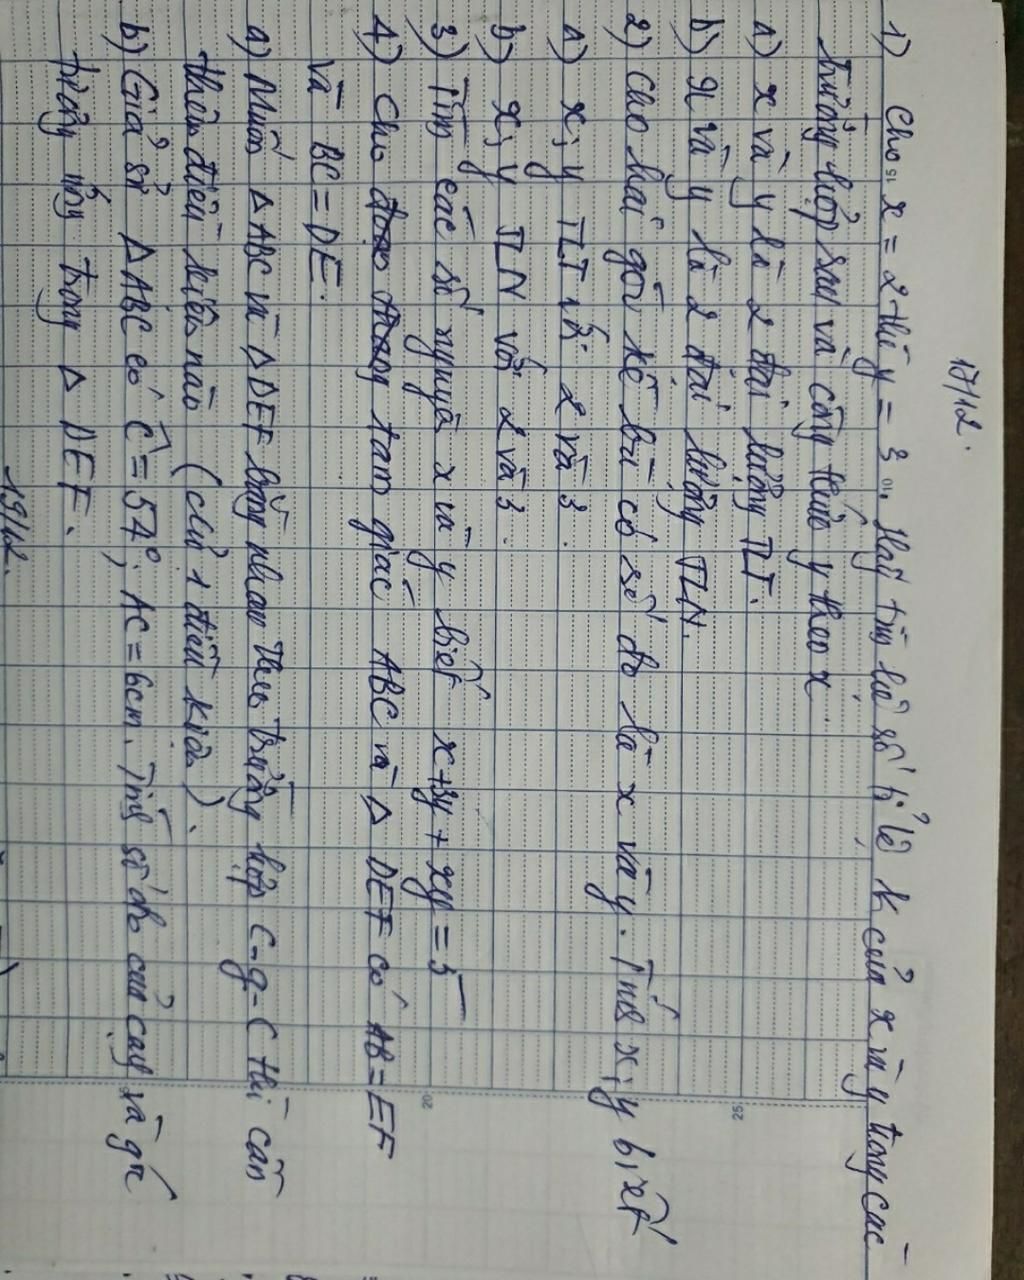 17/12.
1) Cho x = 2 thì y = 3. Hãy tìm hệ số tỉ lệ k của x và y trong các
trường hợp sau và công thức y theo x.
a) x và y là 2 đại lượng TLT.
b) x và y là 2 đại lượng TLN.
2) Cho hai góc kề bù có số đo là x và y. Tính x; y biết
a) x; y TLT với 2 và 3.
b) x; y TLN với 2 và 3.
3) Tìm các số nguyên x và y biết x+3y + xy = 5
4) Cho tam giác ABC và △ DEF có AB = EF
và BC = DE.
a) Muốn △ABC và △DEF bằng nhau theo trường hợp c-g-c thì cần
thêm điều kiện nào (chỉ 1 điều kiện).
b) Giả sử △ABC có Ĉ = 57°; AC = 6cm. Tính số đo của cạnh và góc
tương ứng trong △ DEF.
19/12.
25
20